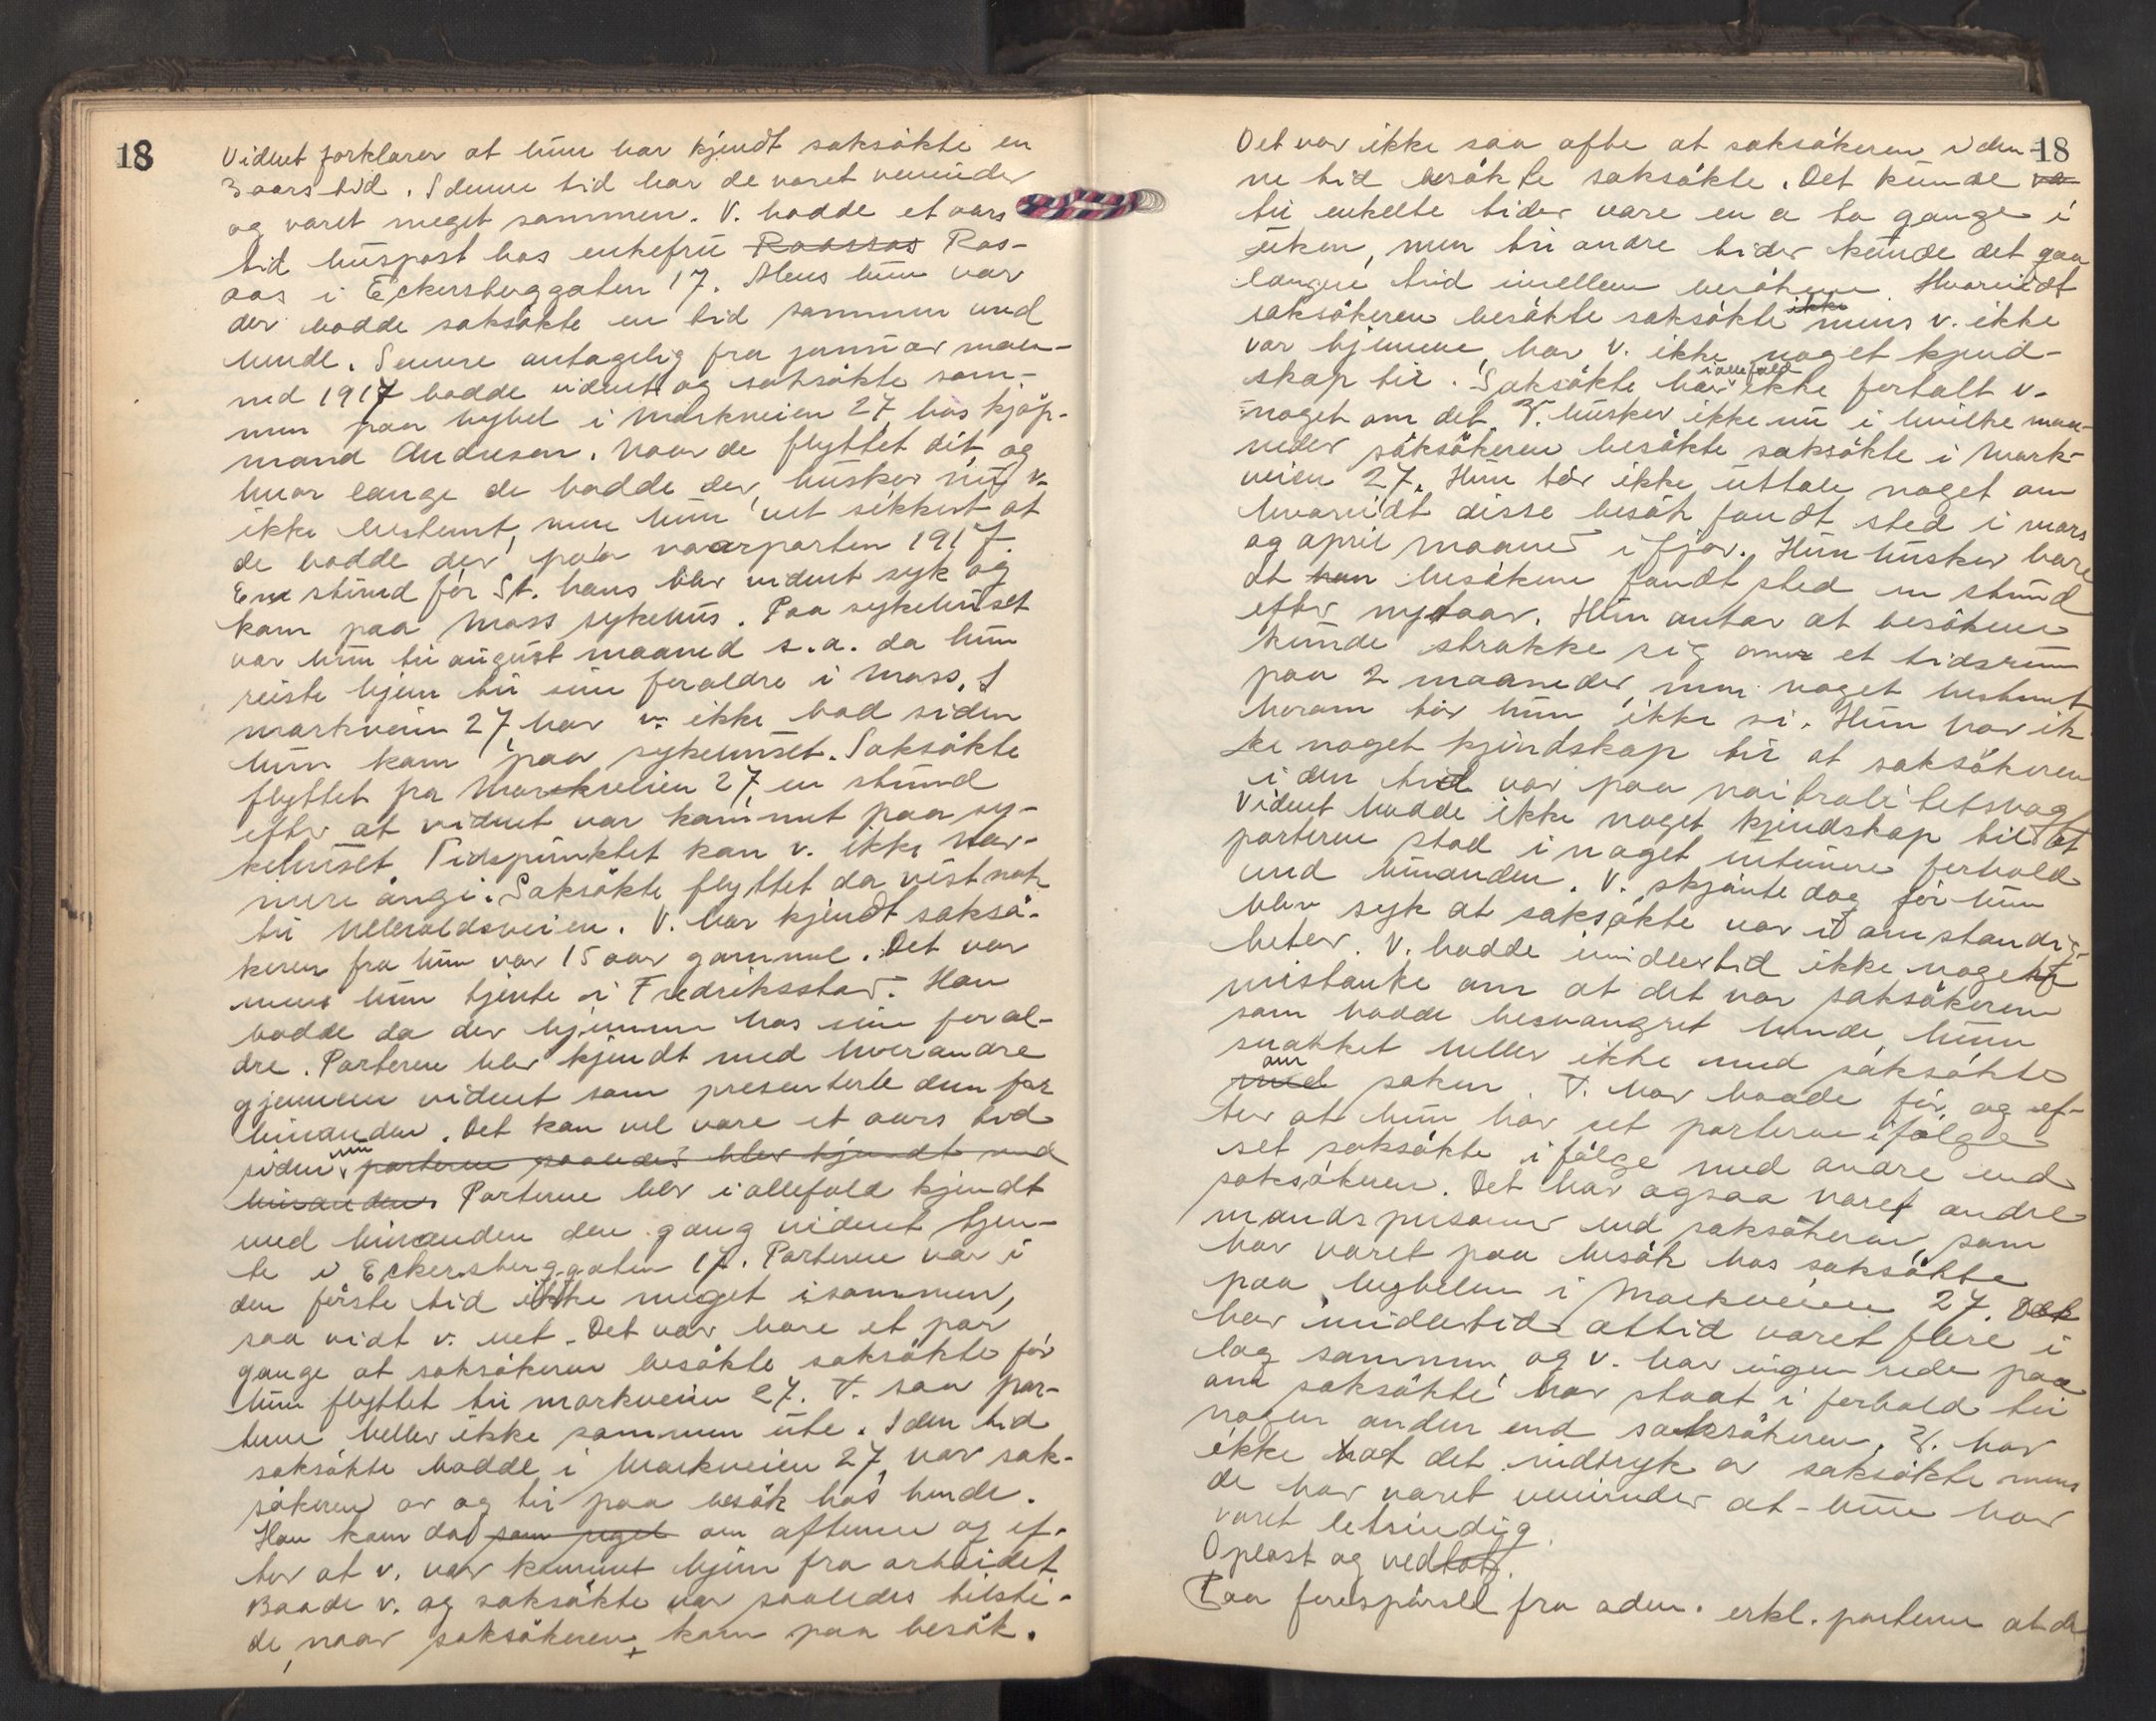 18
Vidnet forklarer at hun har kjendt saksökte en
3 aars tid. I denne tid har de været veninder
og været meget sammen. V. bodde et aars
tid i huspost hos enkefru Raassas Ras-
aas i Eckersberggaten 17. Mens hun var
der bodde saksökte en tid sammen med
hende. Senere antagelig fra januar maa-
ned 1917 bodde vidnet og saksökte sam-
men paa hybel i Markveien 27 hos kjöp-
mand Andresen. Naar de flyttet dit og
hvor længe de bodde der, husker nu v.
ikke bestemt, men hun vet sikkert at
de bodde der paa vaarparten 1917.
En stund för St. hans blev vidnet syk og
kom paa Moss sykehus. Paa sykehuset
var hun til august maaned s.a. da hun
reiste hjem til sine forældre i Moss. I
markveien 27 har v. ikke bod siden
hun kom paa sykehuset. Saksökte
flyttet fra Markveien 27 en stund
efter at vidnet var kommet paa sy-
kehuset. Tidspunktet kan v. ikke nær-
mere angi. Saksökte flyttet da vistnok
til Ullevoldsveien. V. har kjendt saksö-
keren fra hun var 15 aar gammel. Det var
mens hun tjente i Fredriksstad. Han
bodde da der hjemme hos sine foræl-
dre. Parterne blev kjendt med hverandre
gjennem vidnet som presenterte dem for
hinanden. Det kan vel være et aars tid
siden nu parterne saaledes blev kjendt med
hinanden. Parterne blev iallefald kjendt
med hinanden den gang vidnet tjen-
te i Eckersberggaten 17. Parterne var i
den förste tid ikke meget isammen,
saa vidt v. vet. Det var bare et par
gange at saksökeren besökte saksökte för
hun flyttet til markveien 27. V. saa par-
terne heller ikke sammen ute. I den tid
saksökte bodde i Markveien 27, var sak-
sökeren av og til paa besök hos hende.
Han kom da som regel om aftenen og ef-
ter at v. var kommet hjem fra arbeidet
Baade v. og saksökte var saaledes tilste-
de, naar saksökeren kom paa besök.
18
Det var ikke saa ofte at saksökeren i den-
ne tid besökte saksökte. Det kunde va
til enkelte tider være en a to gange i
uken, men til andre tider kunde det gaa
længere tid imellem besökene. Hvorvidt
saksökeren besökte saksökte ikke mens v. ikke
var hjemme, har v. ikke noget kjend-
skap til. Saksökte har iallefald ikke fortalt v.
noget om det. V. husker ikke nu i hvilke maa-
neder saksökeren besökte saksökte i Mark-
veien 27. Hun tör ikke uttale noget om
hvorvidt disse besök fandt sted i mars
og april maaned ifjor. Hun husker bare
at han besökene fandt sted en stund
efter nyttaar. Hun antar at besökene
kunde strække sig over et tidsrum
paa 2 maaneder, men noget bestemt
herom tör hun ikke si. Hun har ik-
ke noget kjendskap til at saksökeren
i den tid var paa nøitralitetsvagt
Vidnet hadde ikke noget kjendskap til at
parterne stod i noget intimere forhold
med hinanden. V. skjönte dog för hun
blev syk at saksökte var i omstændig-
heter. V. hadde imidlertid ikke noget
mistanke om at det var saksökeren
som hadde besvangret hende, hun
snakket heller ikke med saksökte
med om saken V. har baade för og ef-
ter at hun har set parterne ifölge
set saksökte i fölge med andre end
saksökeren. Det har ogsaa været andre
mandspersoner end saksökeren, som
har været paa besök hos saksökte
paa hybelen i Markveien 27. Det
har imidlertid altid været flere i
lag sammen, og v. har ingen rede paa
om saksökte har staat i forhold til
nogen anden end saksökeren. V. har
ikke hat det indtryk av saksökte mens
de har været veninder at hun har
været letsindig.
Oplæst og vedtat.
Paa forespörsel fra adm. erkl. parterne at de